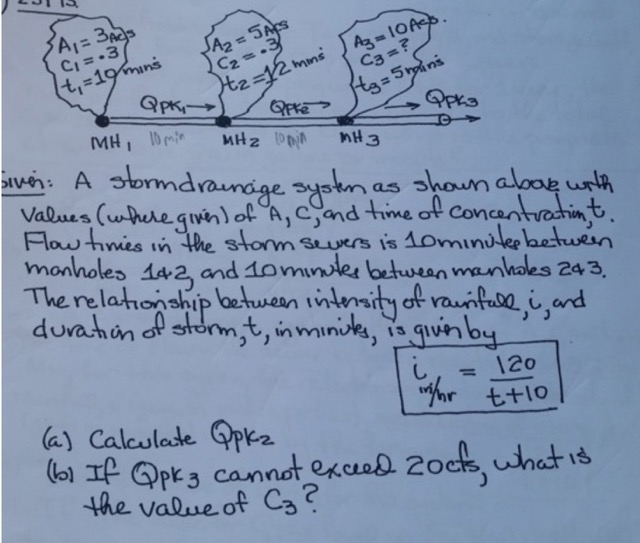 A1 = 3 Acs
C1 = .3
t1 = 10 mins
A2 = 5 Acs
C2 = .3
t2 = 12 mins
A3 = 10 Acs.
C3 = ?
t3 = 5 mins
Qpk1 → Qpk2 → Qpk3
MH1 10 min MH2 10 min MH3
Given: A storm drainage system as shown above with
values (where given) of A, C, and time of concentration, t.
Flow times in the storm sewers is 10 minutes between
manholes 1&2, and 10 minutes between manholes 2&3.
The relationship between intensity of rainfall, i, and
duration of storm, t, in minutes, is given by
i in/hr = 120 / t+10
(a) Calculate Qpk2
(b) If Qpk3 cannot exceed 20 cfs, what is
the value of C3?